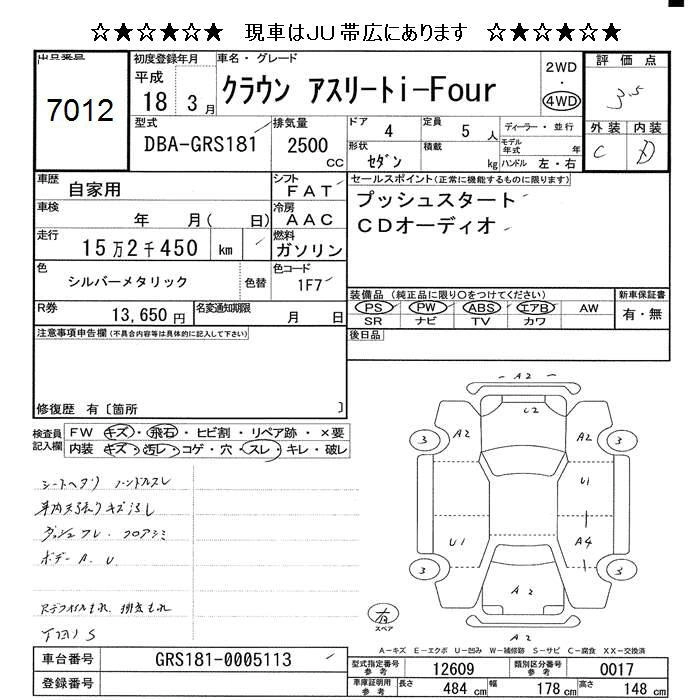 ☆★☆★☆★ 現車はJU帯広にあります ☆★☆★☆★
出品番号
7012
初度登録年月
平成
18 年 3 月
車名・グレード
クラウン アスリートi-Four
2WD
・
4WD
評価点
3.5
外装 内装
C D
型式
DBA-GRS181
排気量
2500
CC
ドア
4
定員
5 人
ディーラー・並行
形状
セダン
積載
kg
モデル年式 年
ハンドル 左・右
車歴
自家用
シフト
FAT
セールスポイント(正常に機能するものに限ります)
プッシュスタート
CDオーディオ
車検
年 月( 日)
冷房
AAC
走行
15万2千450 km
燃料
ガソリン
色
シルバーメタリック
色替
色コード
1F7
装備品 (純正品に限り○をつけてください)
PS PW ABS エアB AW
SR ナビ TV カワ
新車保証書
有・無
R券
13,650円
名変通知期限
月 日
注意事項申告欄(不具合内容等は具体的に記入して下さい)
後日品
修復歴 有〔箇所 〕
検査員
記入欄
FW キズ・飛石・ヒビ割・リペア跡・×要
内装 キズ・汚レ・コゲ・穴・スレ・キレ・破レ
シートヘタリ ハンドルスレ
ボデーA.U
A2
C2
3 A2 A2 3
U1
U1 A4
3 3
A2
A2
有
スペア
A-キズ E-エクボ U-凹み W-補修跡 S-サビ C-腐食 XX-交換済
車台番号
GRS181-0005113
登録番号
型式指定番号
参考
12609
類別区分番号
参考
0017
車庫証明用
参考
長さ 484 cm 幅 178 cm 高さ 148 cm